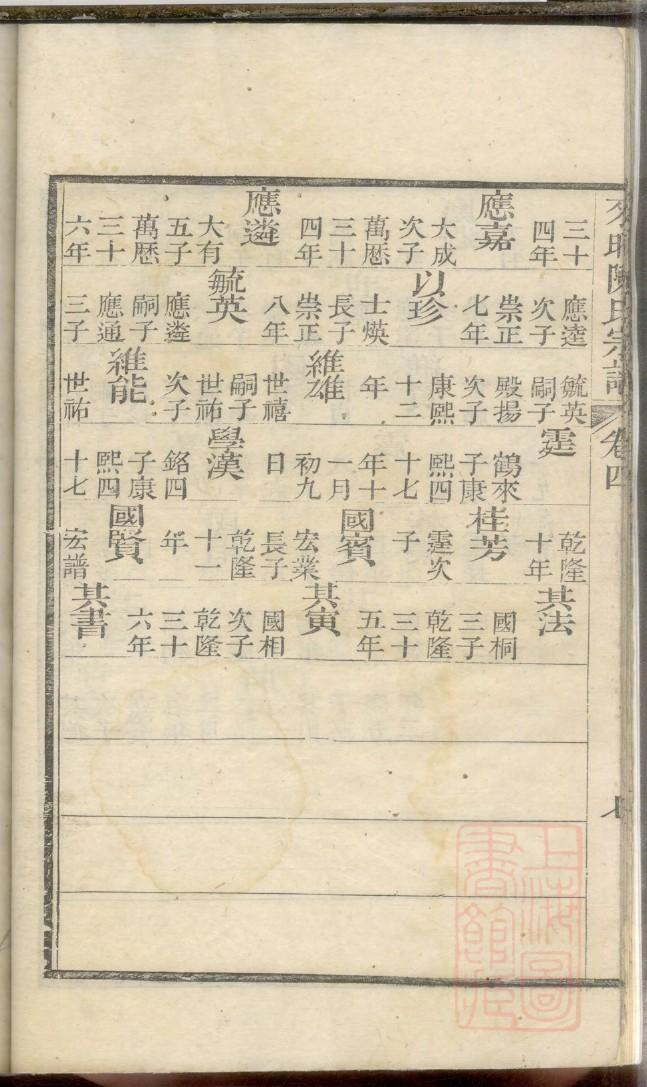 陳氏宗譜
卷四
七
三十
四年
應嘉
大成
次子
萬厯
三十
四年
應遴
大有
五子
萬厯
三十
六年
應逵
次子
崇正
七年
以珍
士煐
長子
崇正
八年
毓英
應遴
嗣子
應通
三子
毓英
嗣子
殿揚
次子
康熙
十二
年
維雄
世禧
嗣子
世祐
次子
維能
世祐
霆
鶴來
子康
熙四
十七
年十
一月
初九
日
學漢
銘四
子康
熙四
十七
乾隆
十年
桂芳
霆次
子
國賓
宏業
長子
乾隆
十一
年
國賢
宏譜
其法
國桐
三子
乾隆
三十
五年
其寅
國相
次子
乾隆
三十
六年
其書
上海圖
書館藏